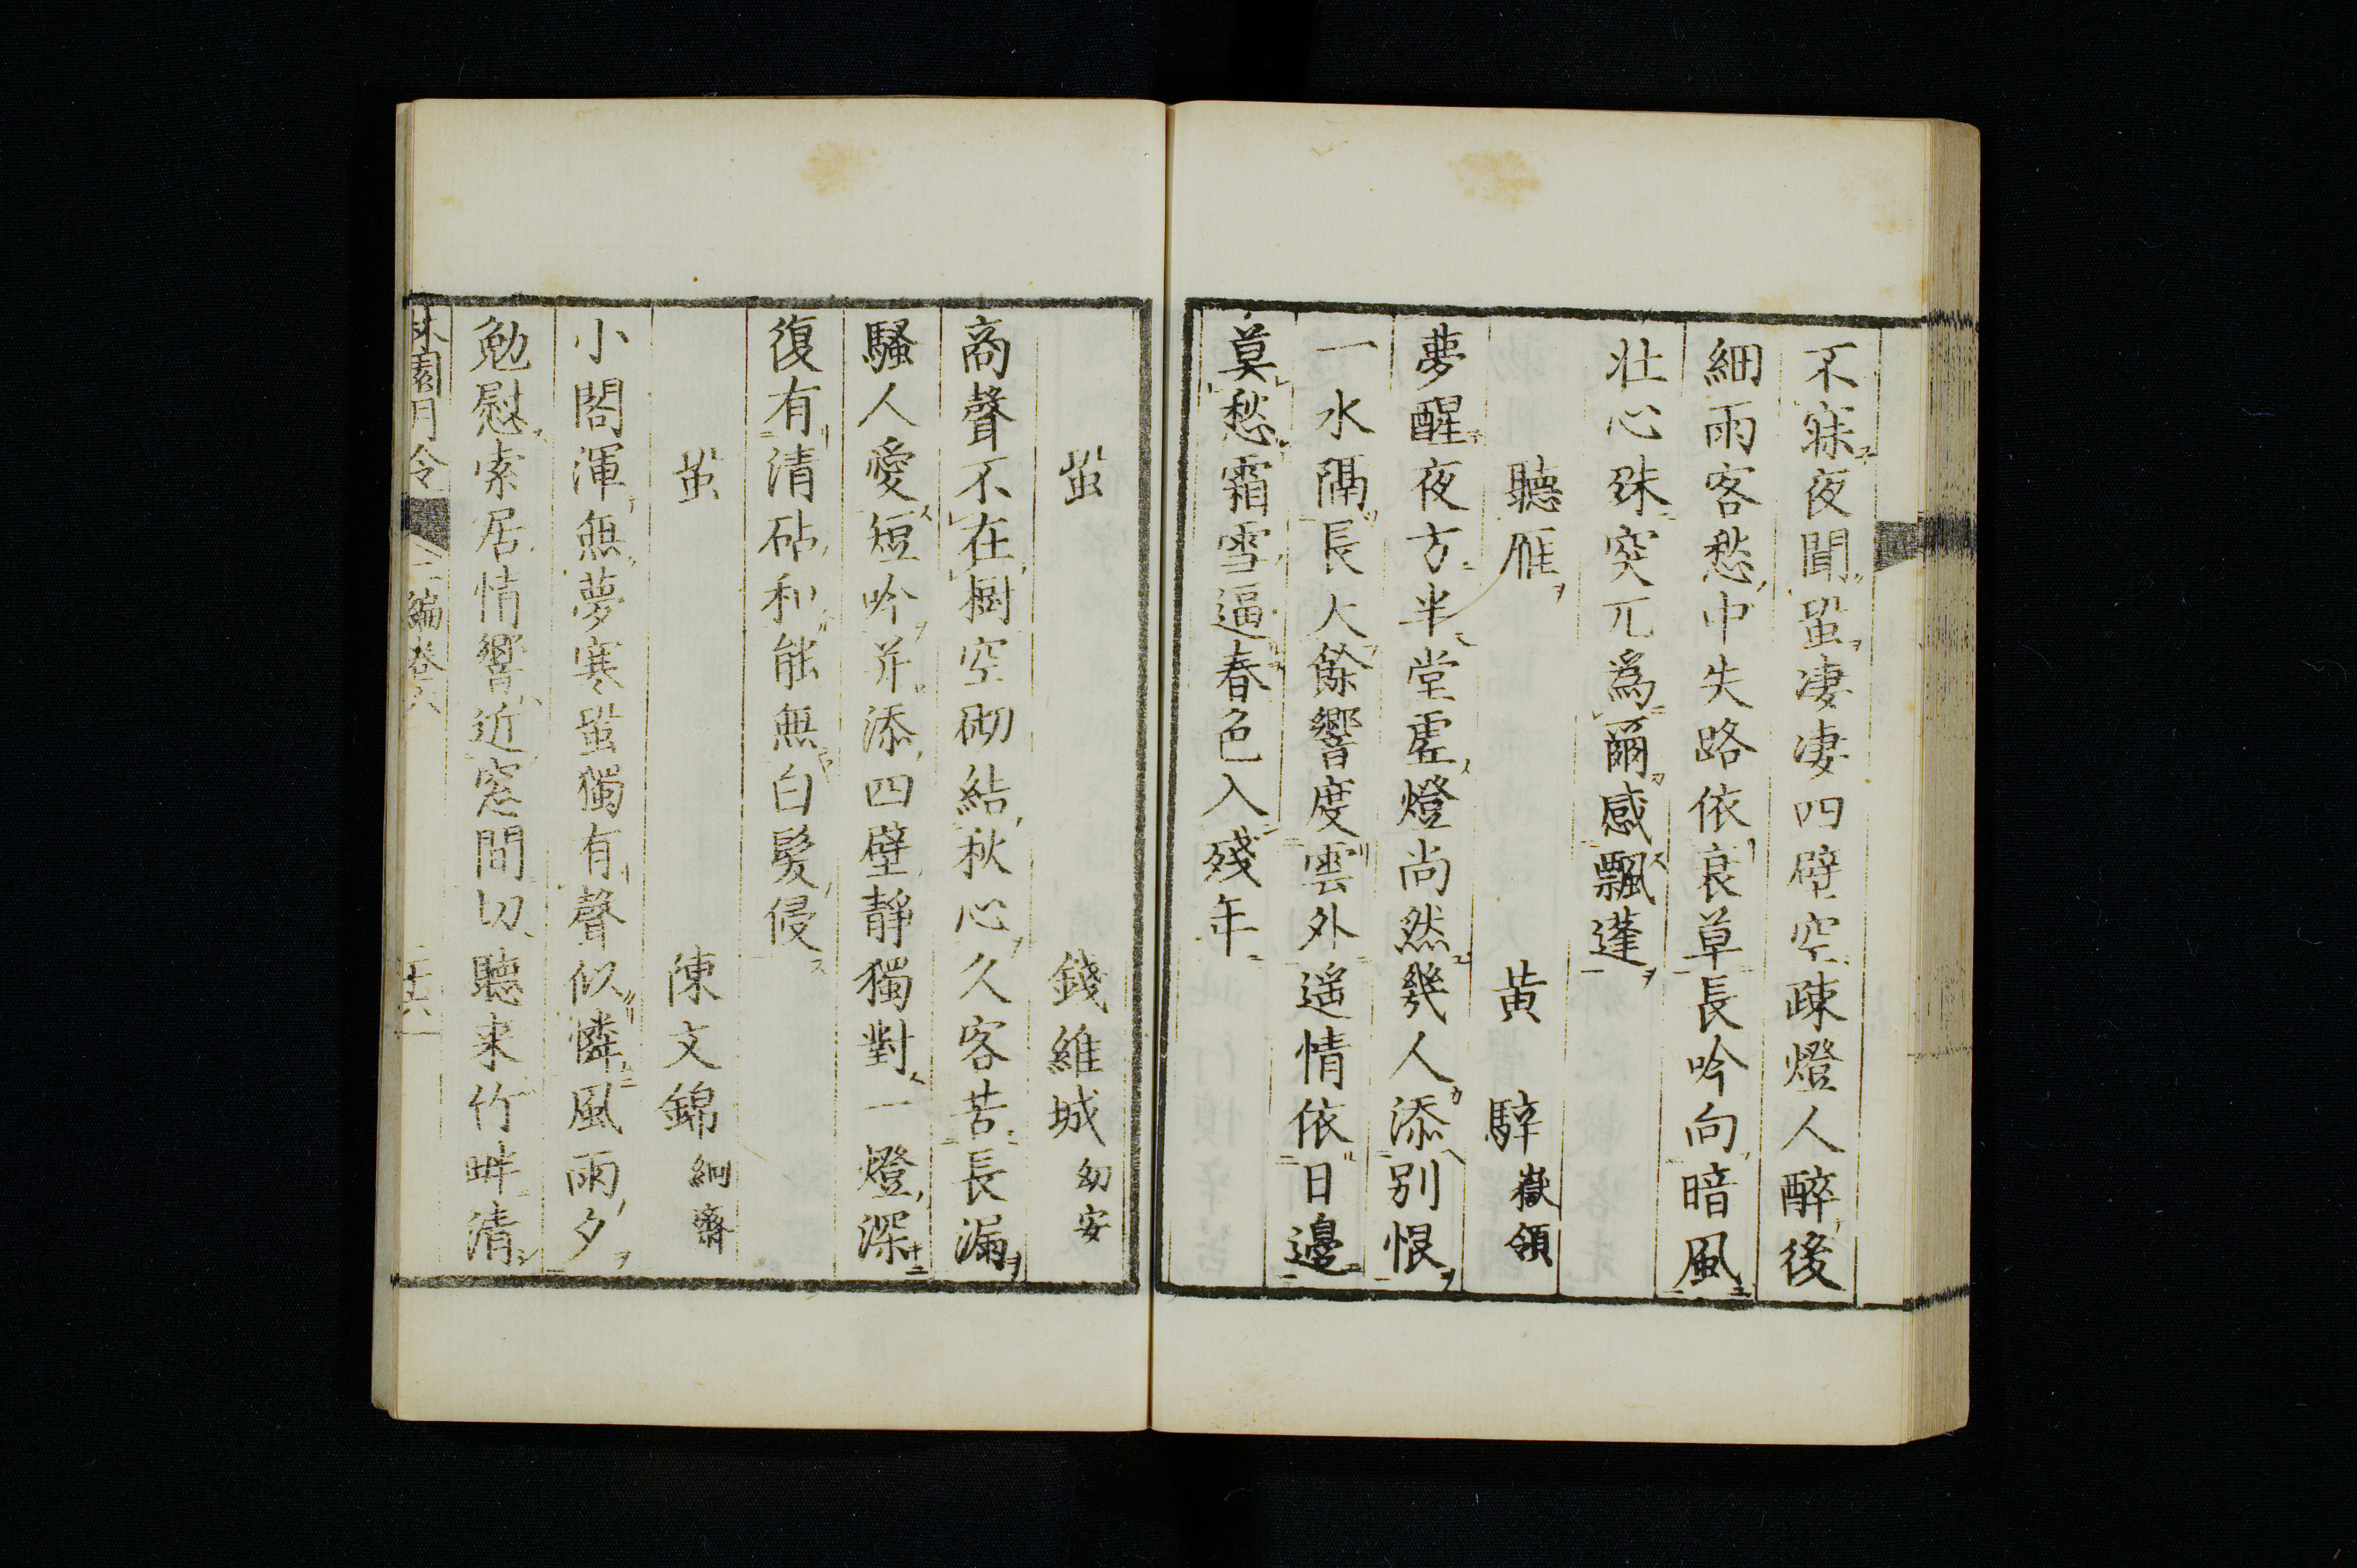 不寐夜聞蛩凄凄四壁空疎燈人醉後
細雨客愁中失路依衰草長吟向暗風
壯心殊突兀為爾感飄蓬
聽雁 黃騂嶽領
夢醒夜方半堂虛燈尚然幾人添別恨
一水隔長天餘響度雲外遥情依日邊
莫愁霜雪逼春色入殘年
蛩 錢維城幼安
商聲不在樹空砌結秋心久客苦長漏
騷人愛短吟并添四壁靜獨對一燈深
復有清砧和能無白髮侵
蛩 陳文錦絅齋
小閣渾無夢寒蛩獨有聲似憐風雨夕
勉慰索居情響近窓間切聽来竹畔清
林園月令 二編卷八 二十六